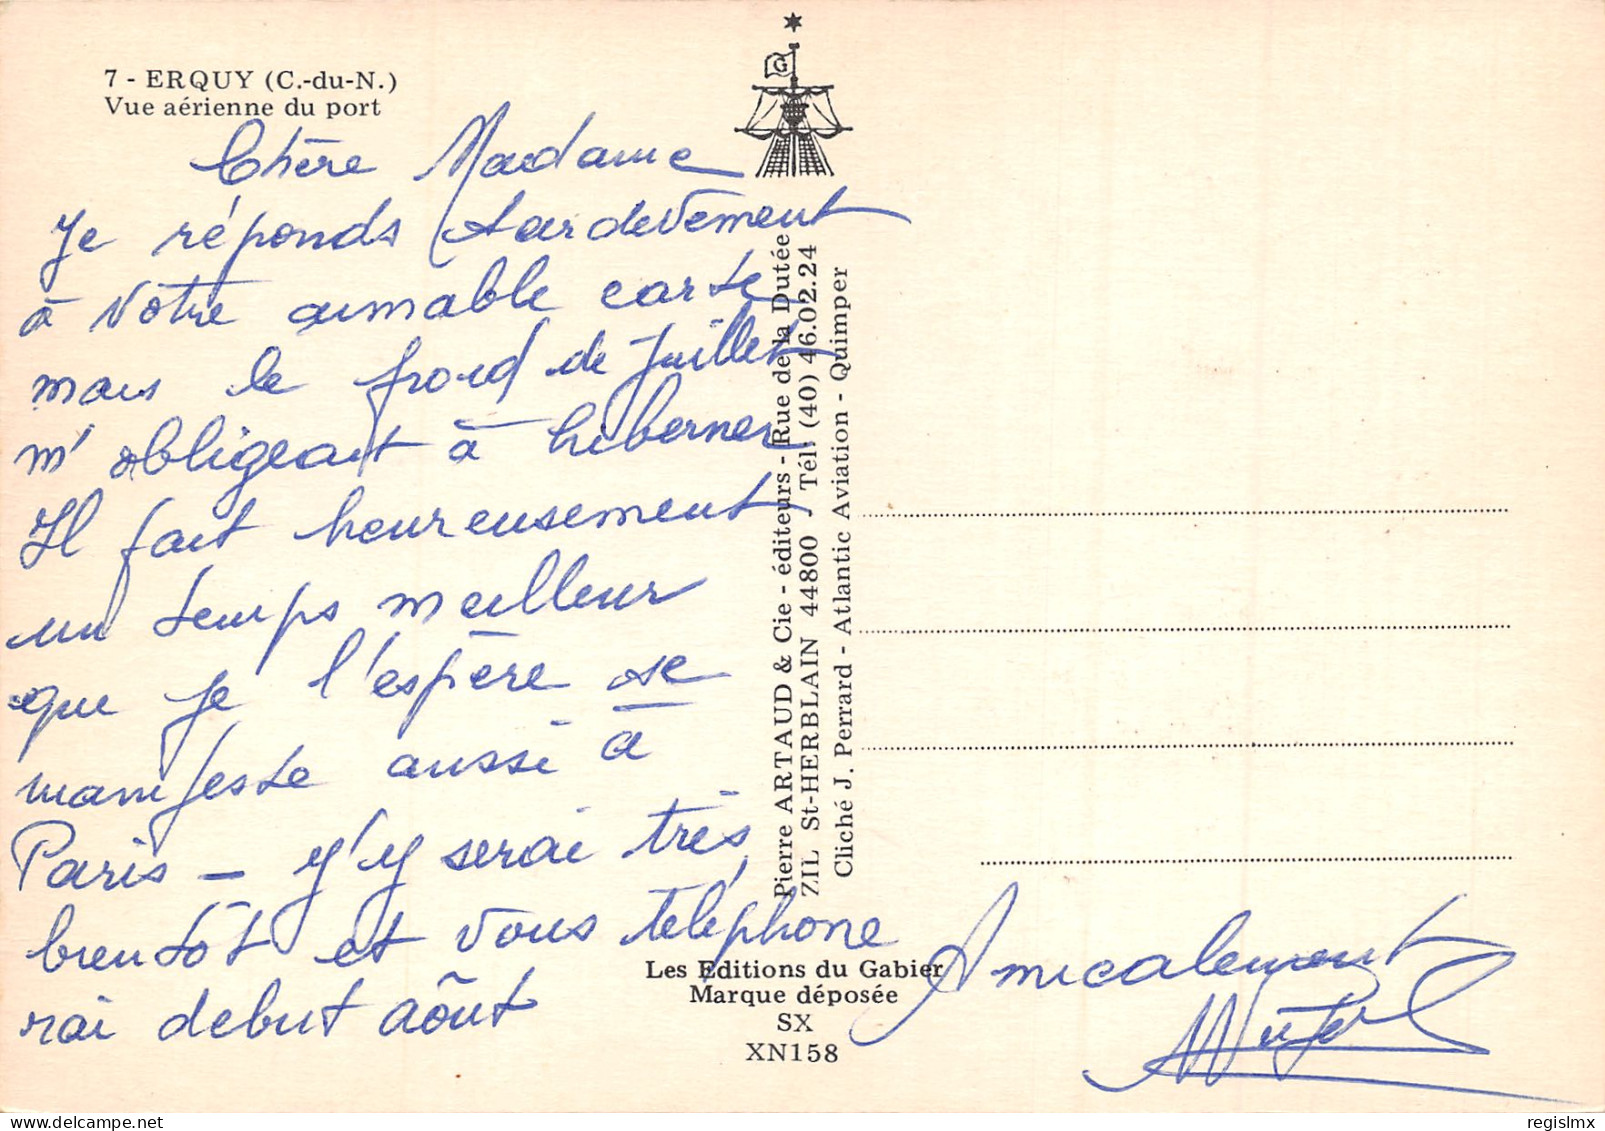 7 - ERQUY (C.-du-N.)
Vue aérienne du port
Chère Madame
Je réponds tardevement
à Votre aimable carte
mais le froid de Juillet
m'obligeait à hiberner
Il fait heureusement
un temps meilleur
que je l'espère se
manifeste aussi à
Paris — y'y serai très
bientôt et vous téléphone
rai debut aôut
Amicalement
G
Pierre ARTAUD & Cie - éditeurs - Rue de la Dutée
ZIL St-HERBLAIN 44800 Tél. (40) 46.02.24
Cliché J. Perrard - Atlantic Aviation - Quimper
Les Editions du Gabier
Marque déposée
SX
XN158
regislmx